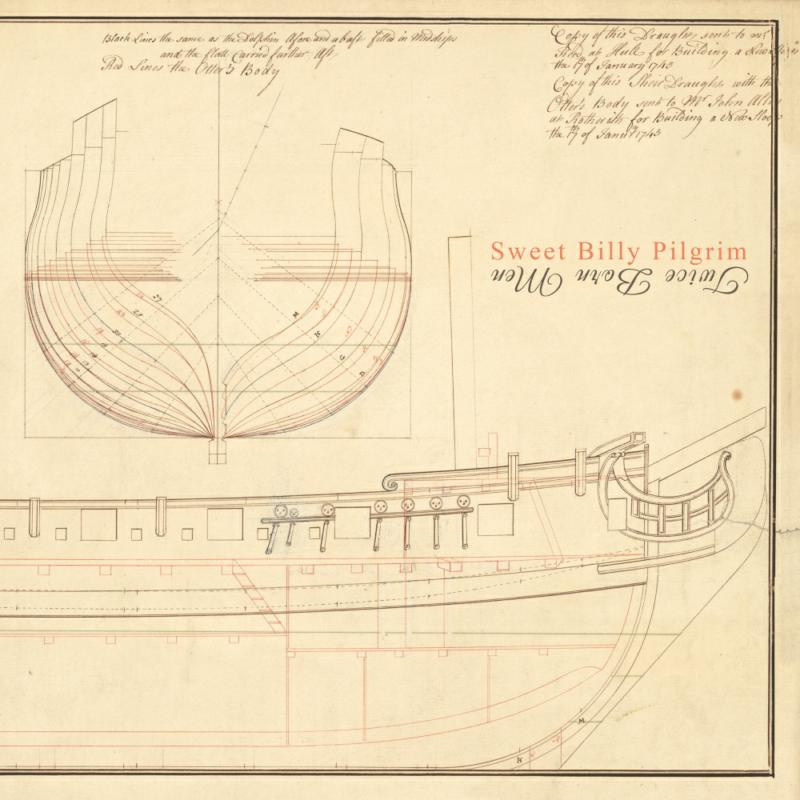 Black Lines the same as the Dolphin Afore and abaft filled in Midships
and the flatt Carried further Aft.
Red Lines the Otter's Body
Copy of this Draught sent to
at Hull for Building a New
the of January 1743
Copy of this Sheer Draught with the
Otter's Body sent to Mr John
at for Building a New Sloop
the of 1743
Sweet Billy Pilgrim
Twice Born Men
M
N
G
D
M
N